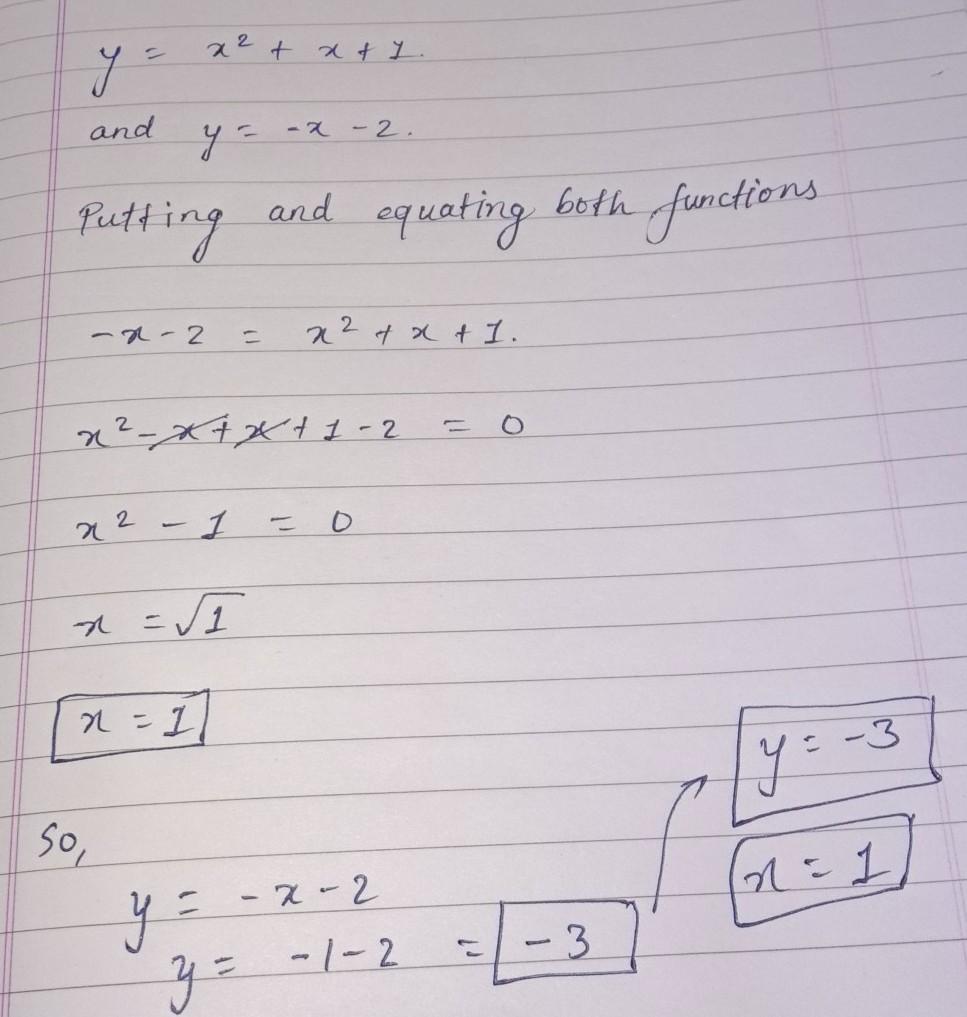 y = x² + x + 1.
and y = -x - 2.
Putting and equating both functions
-x - 2 = x² + x + 1.
x² - x + x + 1 - 2 = 0
x² - 1 = 0
x = √1
x = 1
y = -3
x = 1
So,
y = -x - 2
y = -1 - 2 = -3